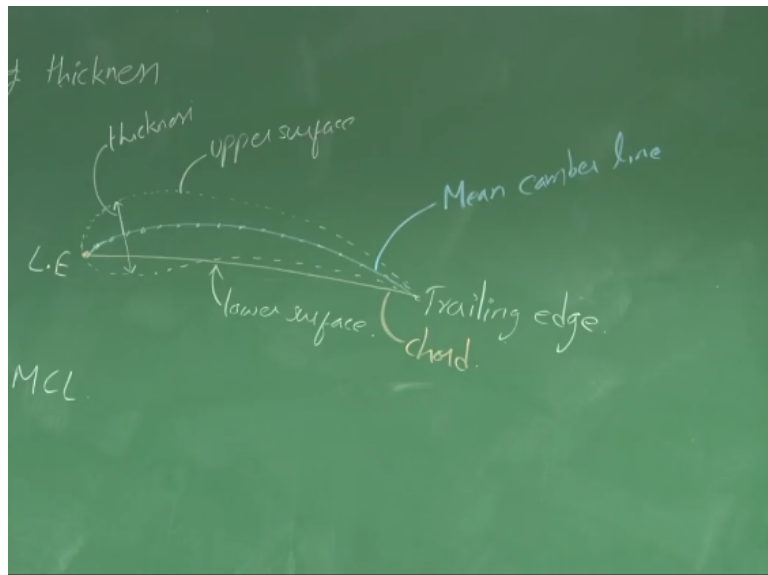 thickness
thickness
upper surface
Mean camber line
L.E
lower surface.
Trailing edge.
chord.
MCL.